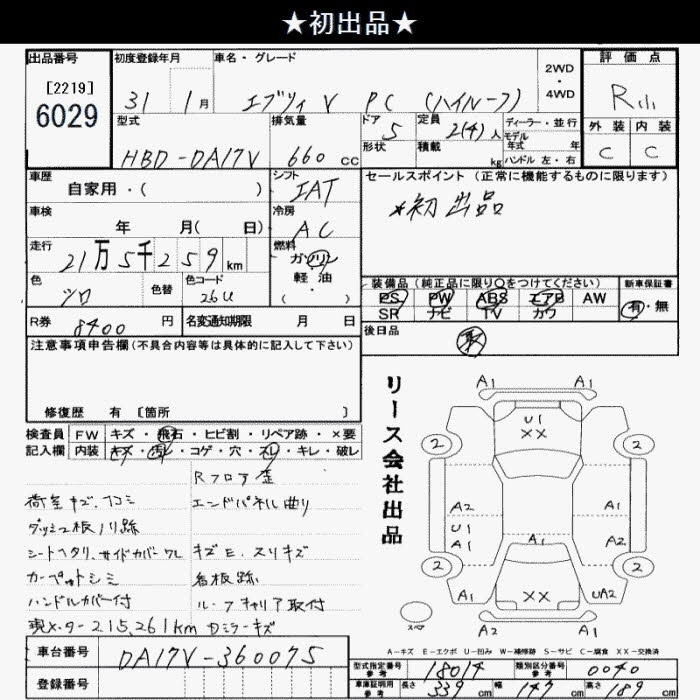 ★初出品★
出品番号 初度登録年月 車名・グレード 2WD・4WD 評価点
[2219]
6029
31 1月 エブリィ V PC (ハイルーフ) R
型式 排気量 ドア 5 定員 2(4)人 ディーラー・並行
形状 積載 kg モデル年式 年
ハンドル 左・右
外装 内装
HBD-DA17V 660cc C C
車歴 シフト セールスポイント (正常に機能するものに限ります)
自家用・( ) IAT
*初出品
車検 冷房
年 月( 日) AC
走行 燃料
21万5千259km ガソリン・軽油
色 色替 色コード ( )
シロ 26U
装備品(純正品に限り○をつけてください) 新車保証書
PS PW ABS エアB AW 有・無
SR ナビ TV カワ
R券 8400円 名変通知期限 月 日
後日品 取
注意事項申告欄(不具合内容等は具体的に記入して下さい)
修復歴 有 [箇所 ]
リース会社出品
検査員記入欄 FW キズ・飛石・ヒビ割・リペア跡・×要
内装 キズ・汚れ・コゲ・穴・スレ・キレ・破レ
Rフロア歪
荷室キズ、凹ミ エンドパネル曲り
ダッシュ板ノリ跡
シートヘタリ、サイドカバーワレ キズE、スリキズ
カーペットシミ 看板跡
ハンドルカバー付 ルーフキャリア取付
現メーター215,261km Dミラーキズ
A1 A1
U1
XX
2 2
A2 A1
U1
A1 A1 A2
2 2
A1 XX UA2
スペア A2 A1
A-キズ E-エクボ U-凹み W-補修跡 S-サビ C-腐食 XX-交換済
車台番号 DA17V-360075
登録番号
型式指定番号 参考 18014 類別区分番号 参考 0040
車庫証明用 参考 長さ 339cm 幅 147cm 高さ 189cm